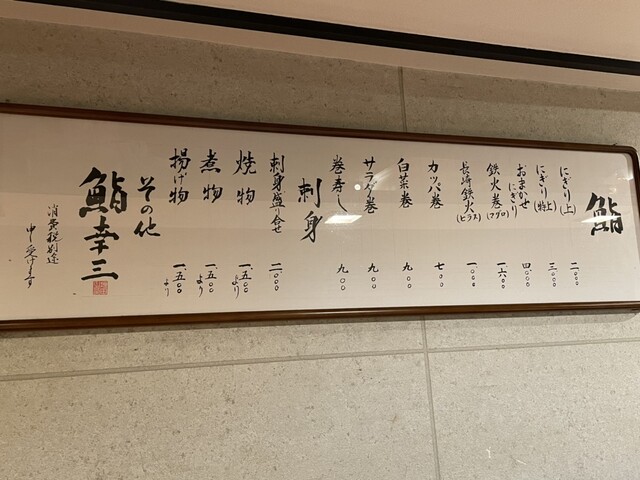 鮨
にぎり(上) 二、〇〇〇
にぎり(特上) 三、〇〇〇
おまかせにぎり 四、〇〇〇
鉄火巻(マグロ) 一、六〇〇
長崎鉄火(ヒラス) 一、〇〇〇
カッパ巻 七〇〇
白菜巻 九〇〇
サラダ巻 九〇〇
巻寿し 九〇〇
刺身
刺身盛り合せ 二、〇〇〇
焼物 一、五〇〇より
煮物 一、五〇〇より
揚げ物 一、五〇〇より
その他
鮨幸三
消費税別途
申受けます